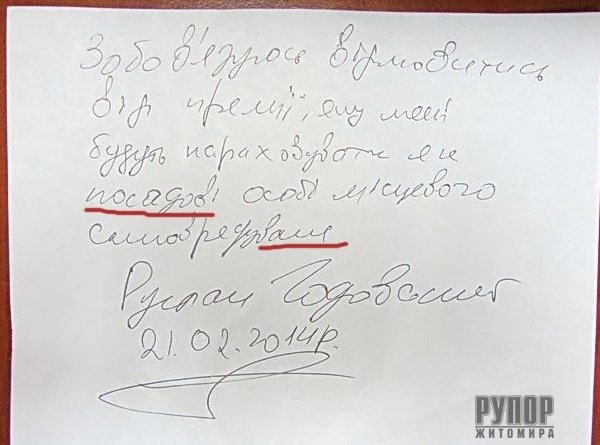 Зобов'язуюсь відмовитись
від премії, яку мені
будуть нараховувати як
посадові особі місцевого
самоврядуване
Руслан Годованит
21.02.2014р.
РУПОР
ЖИТОМИРА